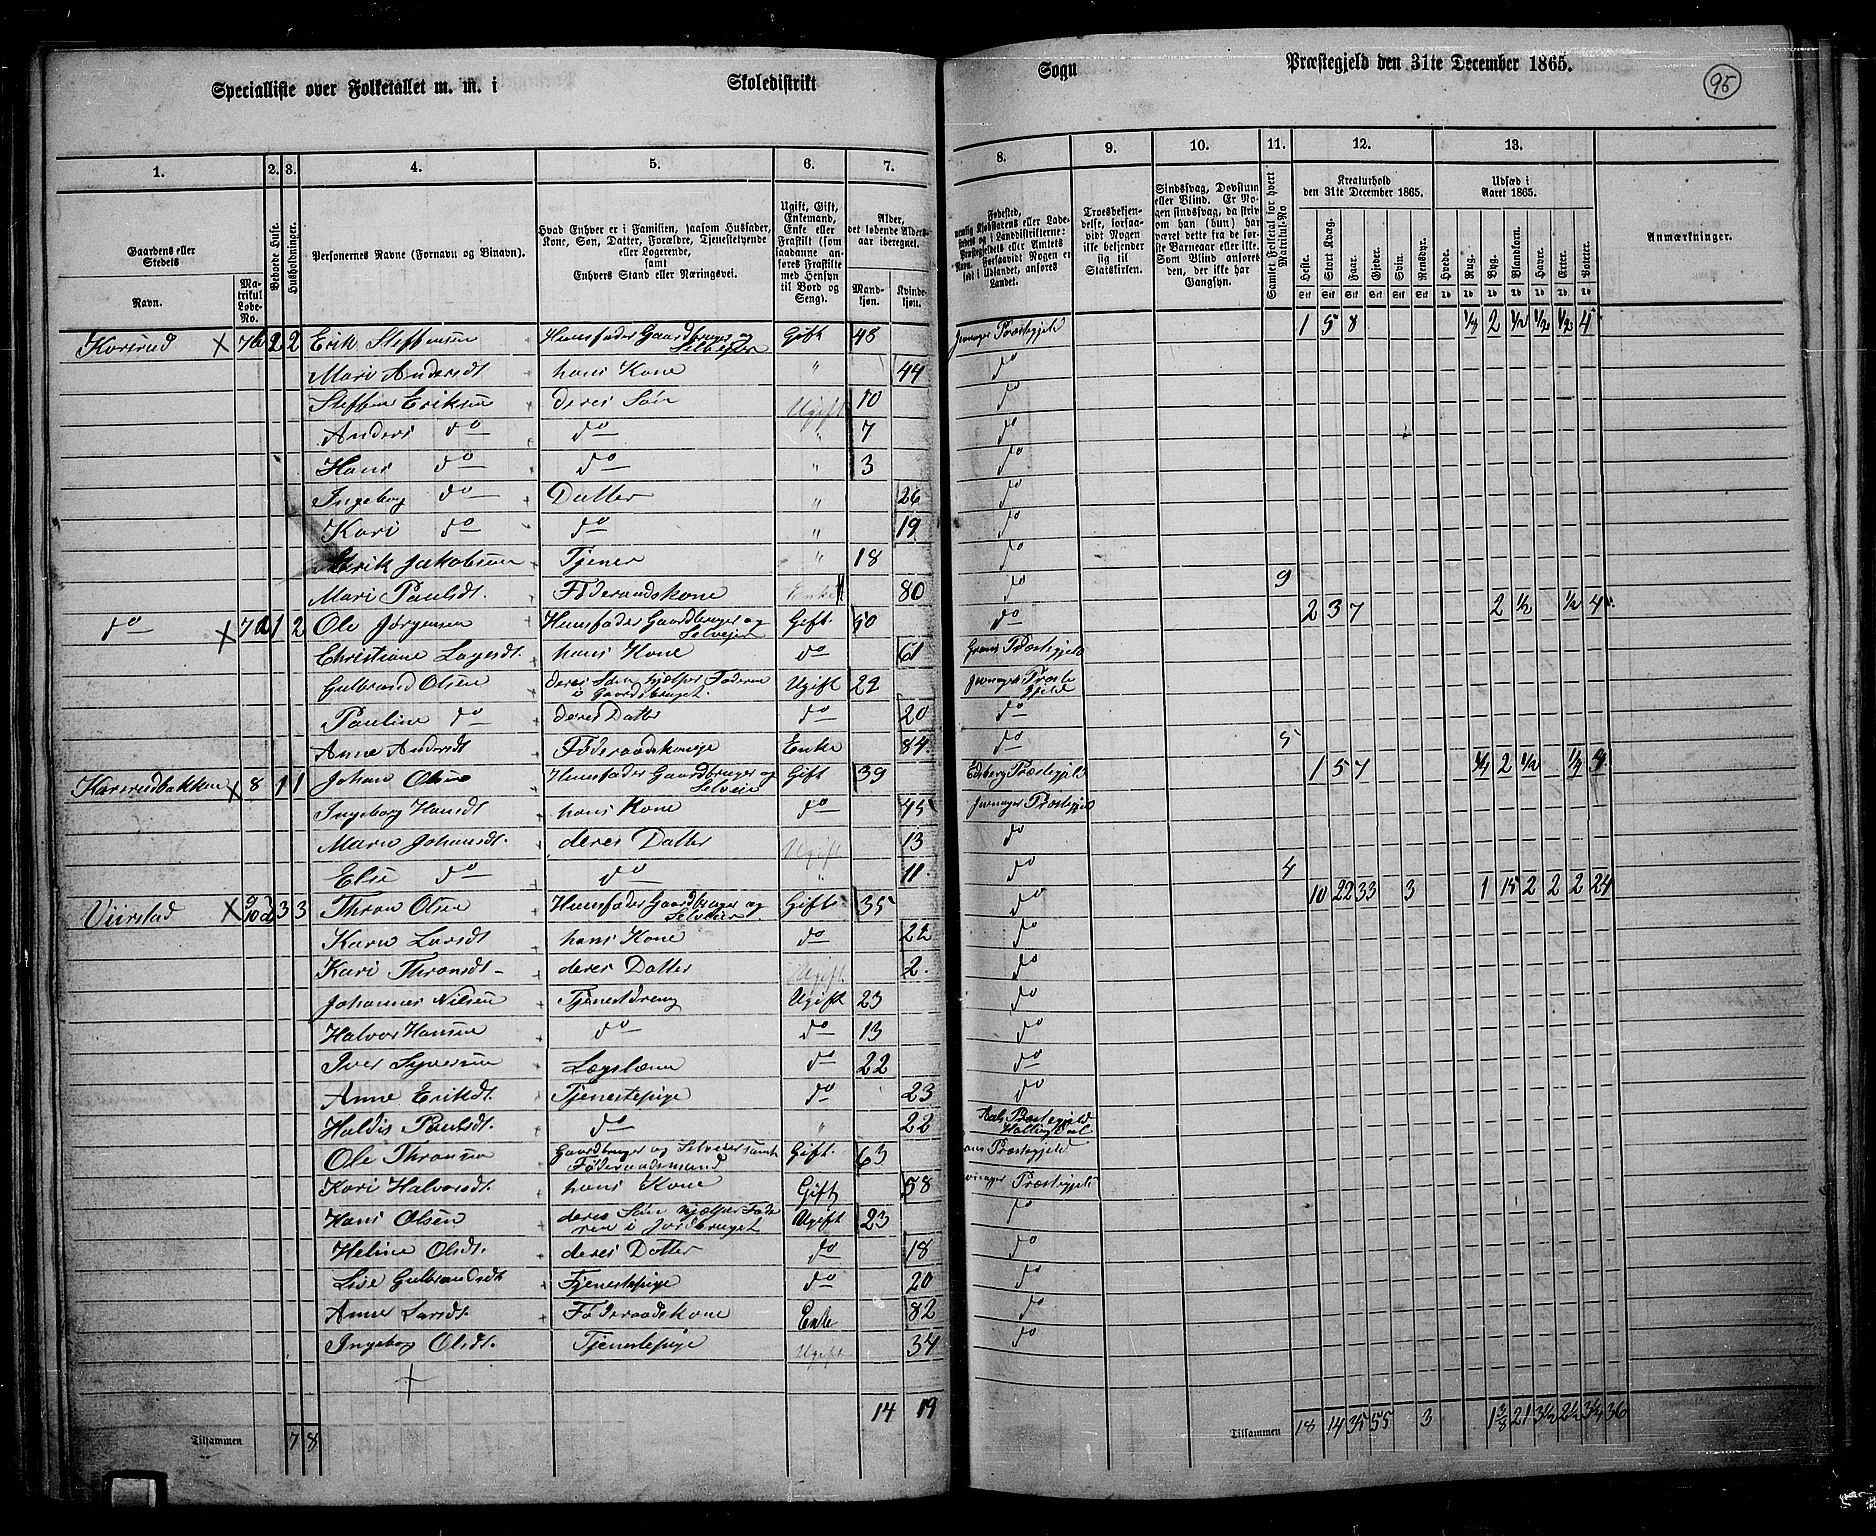 Specialliste over Folketallet m. m. i Skoledistrikt Sogn Præstegjeld den 31te December 1865. 95
1. 2. 3. 4. 5. 6. 7. 8. 9. 10. 11. 12. 13.
Gaardens eller Stedets Navn. Matrikul Løbe-No. Beboede Huse. Husholdninger. Personernes Navne (Fornavn og Binavn). Hvad Enhver er i Familien, saasom Husfader, Kone, Søn, Datter, Forældre, Tjenestetyende eller Logerende, samt Enhvers Stand eller Næringsvei. Ugift, Gift, Enkemand, Enke eller Frastilt (som saadanne anføres Frastilte med Hensyn til Bord og Seng). Alder, det løbende Aldersaar iberegnet. Mandkjøn. Kvindekjøn. Fødested, Troesbekjendelse, forsaavidt Nogen ikke bekjender sig til Statskirken. Sindssvag, Døvstum eller Blind. Samlet Folketal for hvert Matrikul-No Kreaturhold den 31te December 1865. Heste. Stort Kvæg. Faar. Gjeder. Svin. Rensdyr. Udsæd i Aaret 1865. Hvede. Rug. Byg. Blandkorn. Havre. Erter. Poteter. Anmærkninger.
Korsrud X 7b 2 2 Erik Steffensen Huusfader Gaardbruger og Selveier Gift 48 Jevnager Præstegjeld 1 5 8 1/8 2 1/2 1/2 1/2 4
Mari Andersdt hans Kone " 44 do
Steffen Eriksen deres Søn Ugift 10 do
Anders do do " 7 do
Hans do do " 3 do
Ingeborg do Datter " 26 do
Kari do do " 19 do
Erik Jakobsen Tjener " 18 do
Mari Paulsdt. Føderaadskone Enke 80 do 9
do X 7 1 2 Ole Jørgensen Huusfader Gaardbruger og Selveier Gift 50 do 2 3 7 2 1/2 1/2 4
Christiane Larsdt. hans Kone do 61 Grans Præstegjeld
Gulbrand Olsen deres Søn hjælper Faderen i Gaardsbruget. Ugift 22 Jevnager Præstegjeld
Pauline do deres Datter do 20 do
Anne Andersdt Føderaadskone Enke 84 do 5
Korsrudbakken X 8 1 1 Johan Olsen Huusfader Gaardbruger og Selveier Gift 39 Edsberg Præstegjeld 1 5 7 1/4 2 1/2 1/4 4
Ingeborg Hansdt hans Kone do 45 Jevnager Præstegjeld
Maren Johansdt. deres Datter Ugift 13 do
Else do do " 11 do 4
Viirstad X 9 10 3 3 Thron Olsen Huusfader Gaardbruger og Selveier Gift 35 do 10 22 33 3 1 15 2 2 2 24
Karen Larsdt hans Kone do 22 do
Kari Thronsdt deres Datter Ugift 2 do
Johannes Nilsen Tjenestdreng Ugift 23 do
Halvor Hansen do do 13 do
Iver Syversen Lægslæm do 22 do
Anne Eriksdt. Tjenestepige do 23 do
Haldis Paulsdt. do " 22 Aals Præstegjeld Hallingdal
Ole Thronsen Gaardbruger og Selveier samt Føderaadsmand Gift. 63 Præstegjeld
Kari Halvorsdt. hans Kone Gift 58 Præstegjeld
Hans Olsen deres Søn hjælper Faderen i Jordbruget Ugift 23 do
Heline Olsdt. deres Datter do 18 do
Lise Gulbrandsdt Tjenestepige do 20 do
Anne Larsdt. Føderaadskone Enke 82 do
Ingeborg Olsdt. Tjenestepige Ugift 34 do
Tilsammen 7 8 14 19 Tilsammen 18 14 35 55 3 1 3/8 21 3 1/2 2 1/2 3 1/4 36